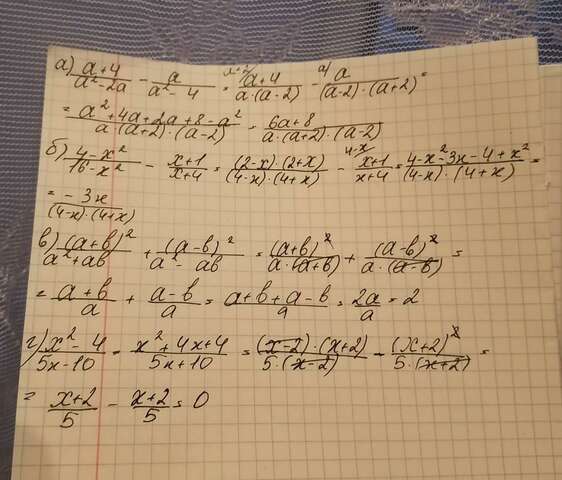 а) (a+4)/(a²-2a) - a/(a²-4) = (a+2/ a+4)/(a·(a-2)) - (a/ a)/((a-2)·(a+2)) =
= (a²+4a+2a+8-a²)/(a·(a+2)·(a-2)) = (6a+8)/(a·(a+2)·(a-2))
б) (4-x²)/(16-x²) - (x+1)/(x+4) = ((2-x)·(2+x))/((4-x)·(4+x)) - (4-x/ x+1)/(x+4) = (4-x²-3x-4+x²)/((4-x)·(4+x)) =
= (-3x)/((4-x)·(4+x))
в) (a+b)²/(a²+ab) + (a-b)²/(a²-ab) = (a+b)²/(a·(a+b)) + (a-b)²/(a·(a-b)) =
= (a+b)/a + (a-b)/a = (a+b+a-b)/a = 2a/a = 2
г) (x²-4)/(5x-10) - (x²+4x+4)/(5x+10) = ((x-2)·(x+2))/(5·(x-2)) - (x+2)²/(5·(x+2)) =
= (x+2)/5 - (x+2)/5 = 0